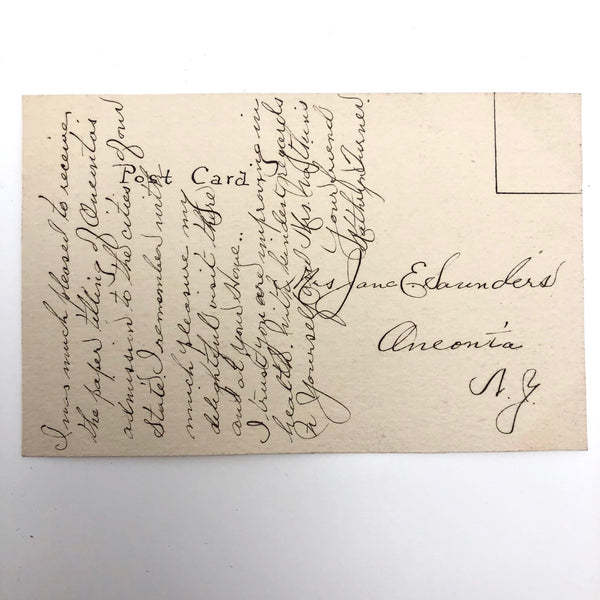 Post Card
I was much pleased to receive
the paper telling of Oneonta's
admission to the cities of our
State. I remember with
much pleasure my
delightful visit there
and at your Home..
I trust you are improving in
health. With kindest regards
to Yourself and Mrs.
Your friend
Kathlyn Turner.
Mrs Jane E Saunders
Oneonta
N.Y.